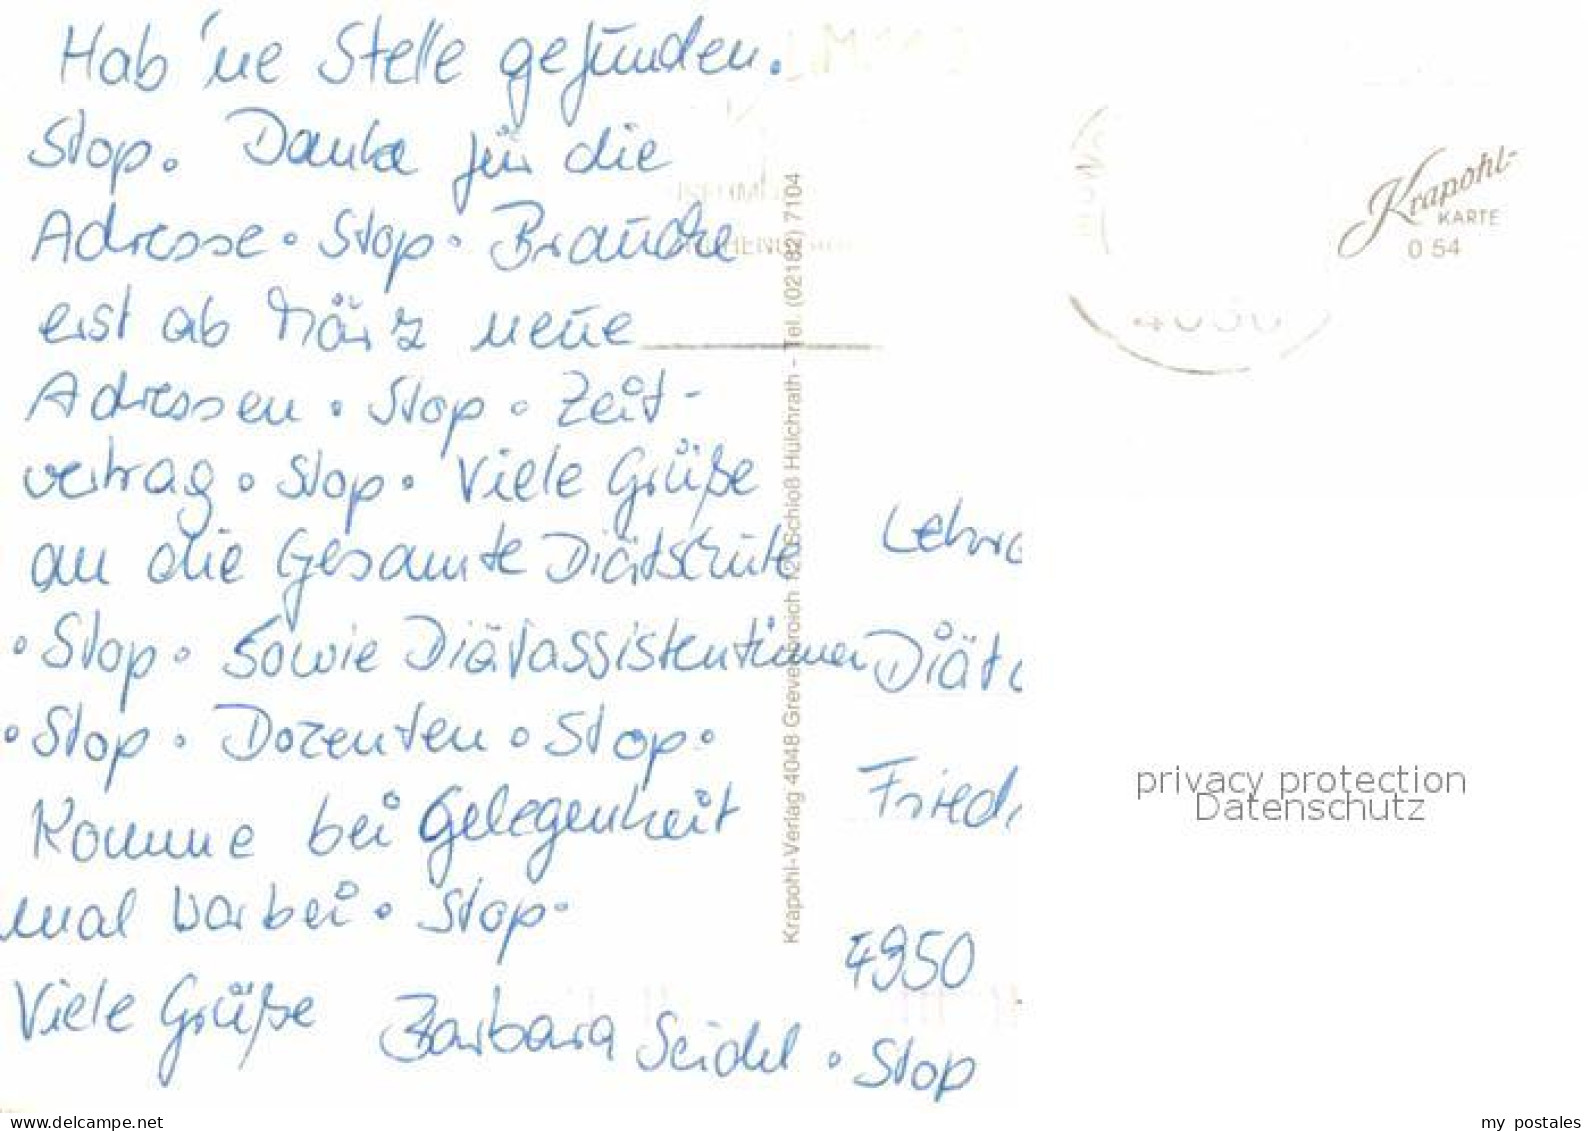 Hab 'ne Stelle gefunden.
Stop. Danke für die
Adresse. Stop. Brauche
erst ab März neue
Adressen. Stop. Zeit-
vertrag. Stop. Viele Grüße
an die Gesamte Diätschüle
. Stop. Sowie Diätassistentinnen
. Stop. Dozenten. Stop.
Komme bei Gelegenheit
mal vorbei. Stop.
Viele Grüße Barbara Seidel. Stop
Krapohl-Verlag 4048 Grevenbroich 12, Schloß Hülchrath - Tel. (02182) 7104
Krapohl-
KARTE
0 54
Diät
Fried
privacy protection
Datenschutz
www.delcampe.net
my postales